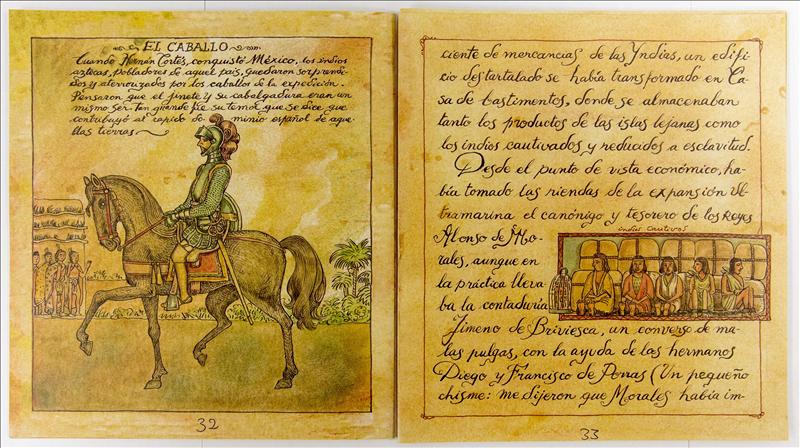 EL CABALLO
Cuando Hernán Cortés conquistó México, los indios
aztecas, pobladores de aquel país, quedaron sorprendi-
dos y aterrorizados por los caballos de la expedición.
Pensaron que el jinete y su cabalgadura eran un
mismo ser. Tan grande fue su temor que se dice que
contribuyó al rápido do- minio español de aque-
llas tierras
32
ciente de mercancías de las Yndias, un edifi-
cio destartalado se había transformado en Ca-
sa de bastimentos, donde se almacenaban
tanto los productos de las islas lejanas como
los indios cautivados y reducidos a esclavitud.
Desde el punto de vista económico, ha-
bía tomado las riendas de la expansión ul-
tramarina el canónigo y tesorero de los Reyes
indios cautivos
Alonso de Mo-
rales, aunque en
la práctica lleva-
ba la contaduría
Jimeno de Briviesca, un converso de ma-
las pulgas, con la ayuda de los hermanos
Diego y Francisco de Porras (Un pequeño
chisme: me dijeron que Morales había im-
33